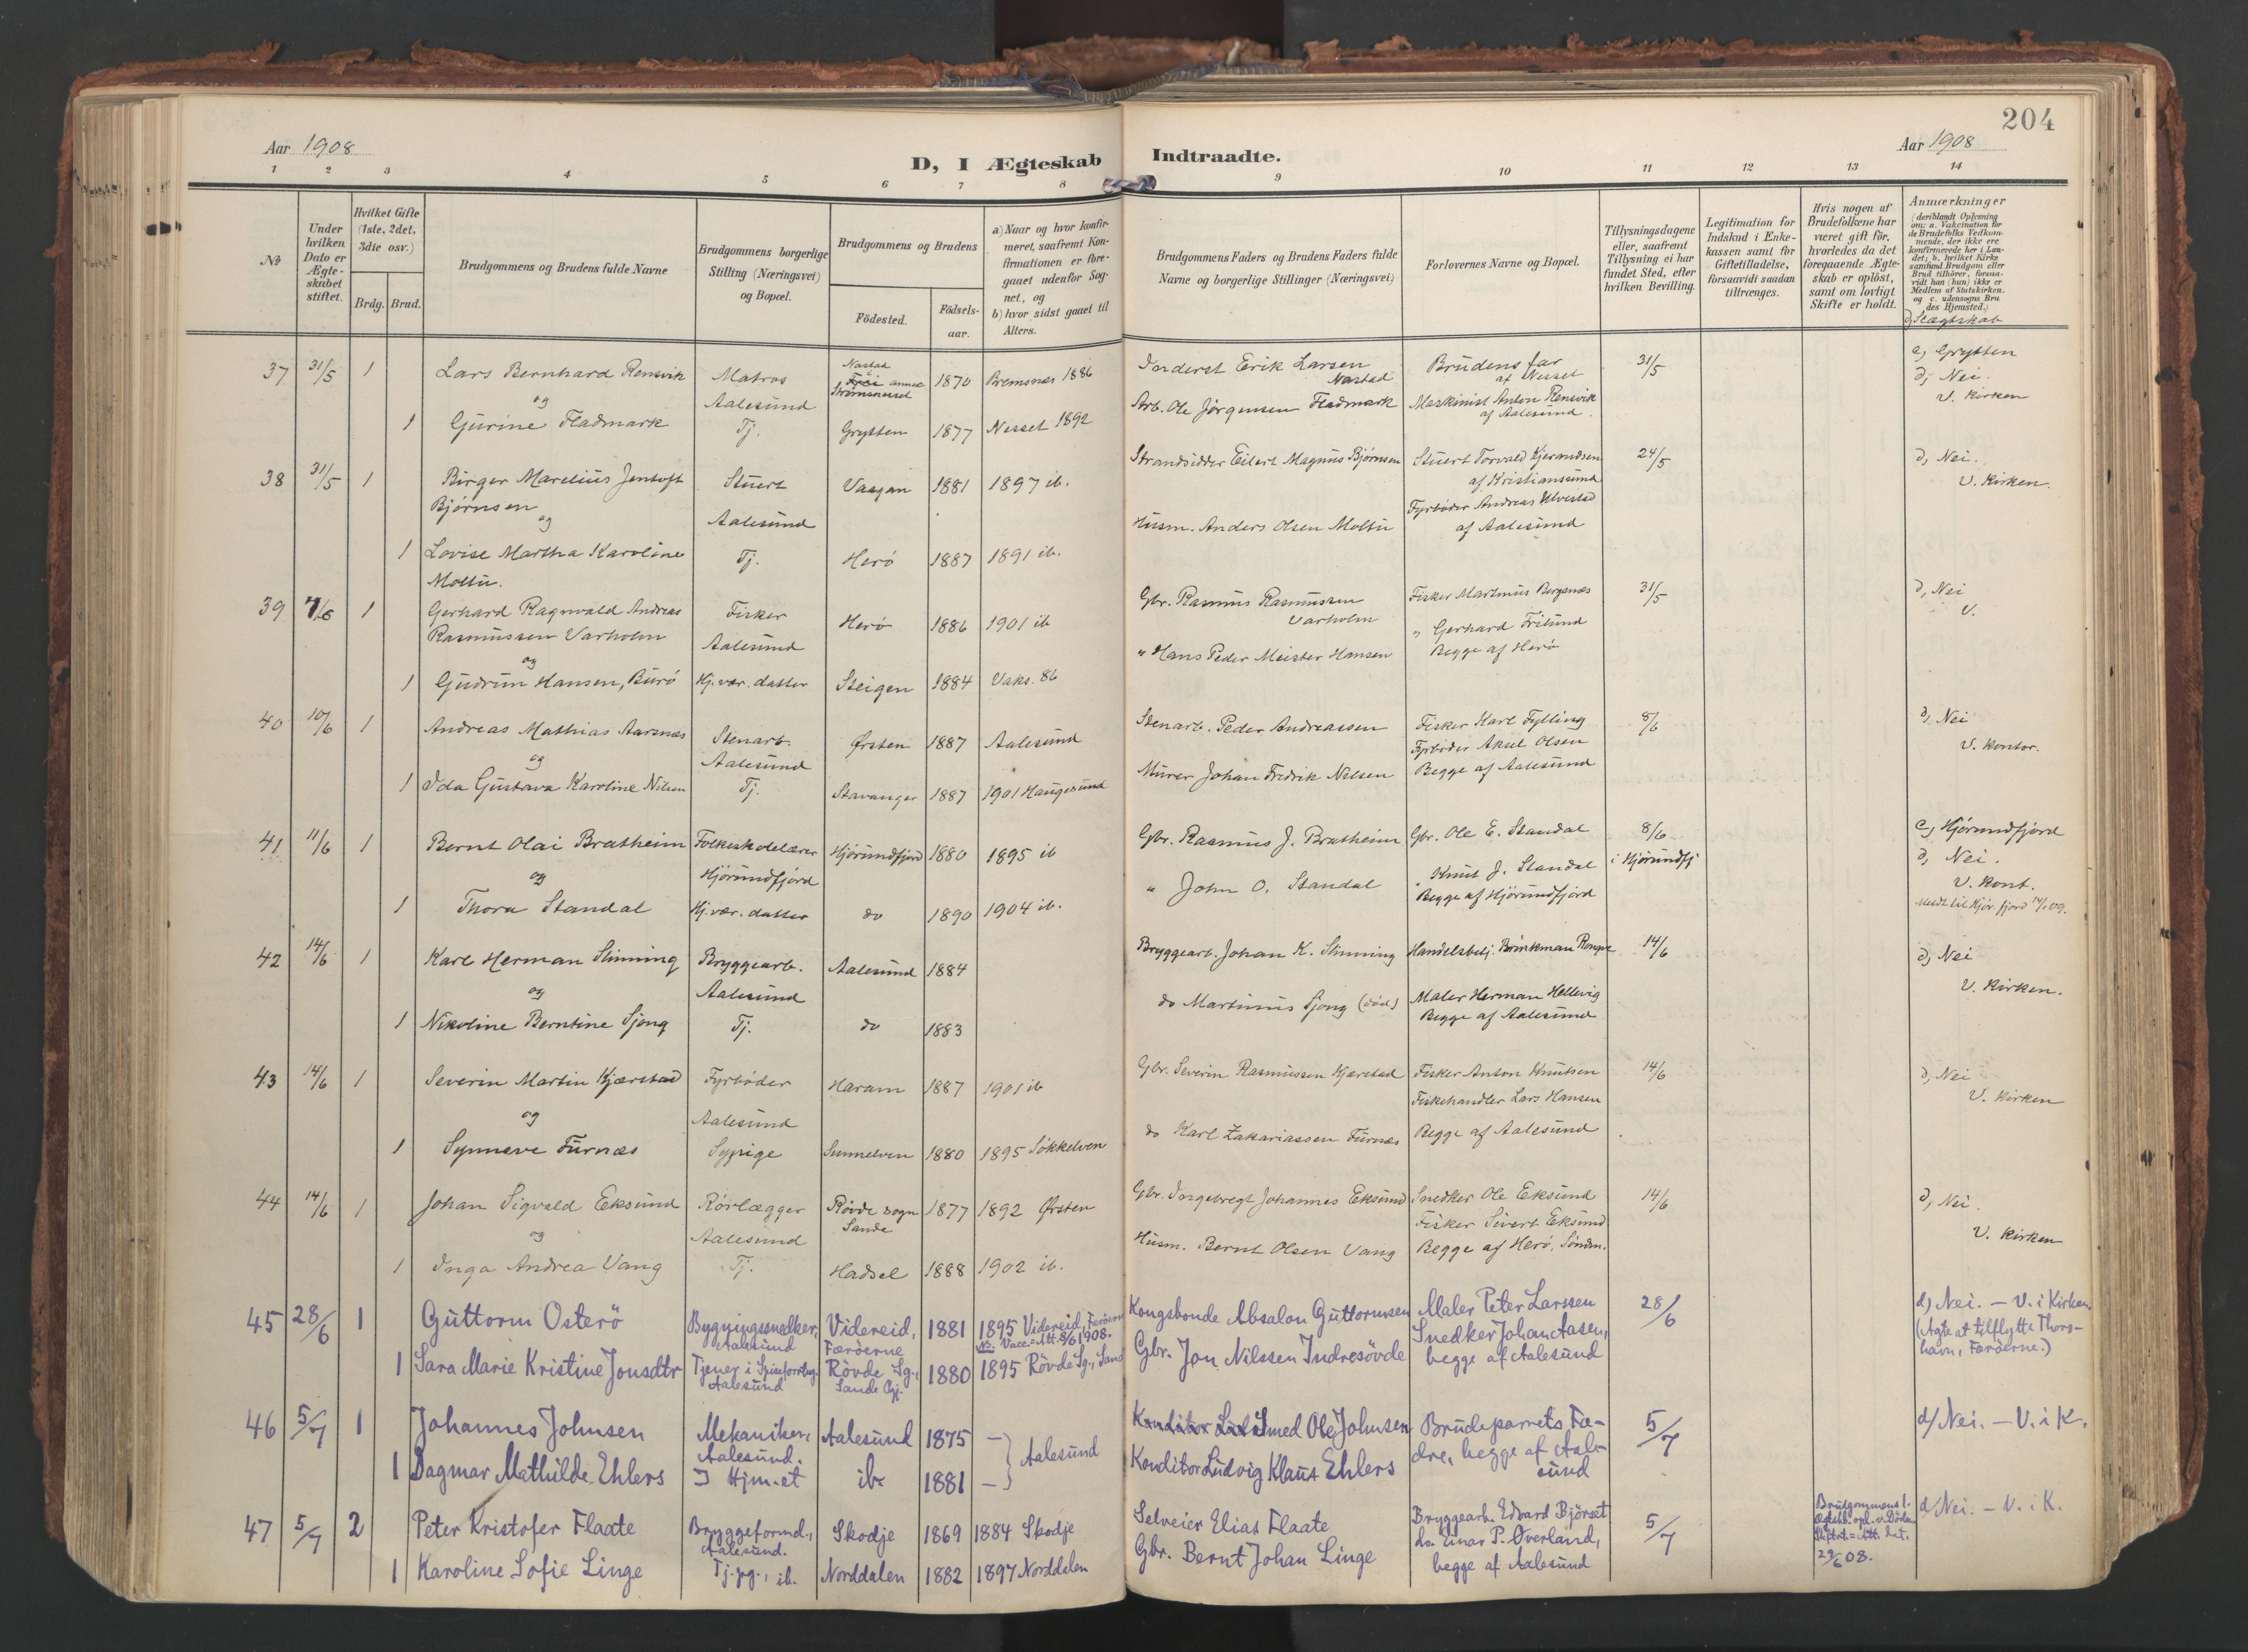 204
Aar 1908
D, I Ægteskab Indtraadte.
Aar 1908
1 2 3 4 5 6 7 8 9 10 11 12 13 14
№
Under hvilken Dato er Ægteskabet stiftet.
Hvilket Gifte (1ste, 2det, 3die osv.)
Brdg. Brud.
Brudgommens og Brudens fulde Navne
Brudgommens borgerlige Stilling (Næringsvei) og Bopæl.
Brudgommens og Brudens
Fødested.
Fødselsaar.
a) Naar og hvor konfirmeret, saafremt Konfirmationen er foregaaet udenfor Sognet, og
b) hvor sidst gaaet til Alters.
Brudgommens Faders og Brudens Faders fulde Navne og borgerlige Stillinger (Næringsvei)
Forlovernes Navne og Bopæl.
Tillysningsdagene eller, saafremt Tillysning ei har fundet Sted, efter hvilken Bevilling.
Legitimation for Indskud i Enkekassen samt for Giftetilladelse, forsaavidt saadan tiltrænges.
Hvis nogen af Brudefolkene har været gift før, hvorledes da det foregaaende Ægteskab er opløst, samt om lovligt Skifte er holdt.
Anmærkninger
(deriblandt Oplysning om: a. Vakcination for de Brudefolks Vedkommende, der ikke ere konfirmerede her i Landet; b. hvilket Kirkesamfund Brudgom eller Brud tilhører, forsaavidt han (hun) ikke er Medlem af Statskirken. og c. udensogns Brudes Hjemsted.)
d, Slægtskab
37 31/5 1 Lars Bernhard Rensvik Matros Nastad 1870 Bremsnes 1886 Inderst Erik Larsen Nastad Brudens far af Nesset 31/5 c, Grytten
og Aalesund d, Nei.
1 Gurine Fladmark Tj. Grytten 1877 Nesset 1892 Arb. Ole Jørgensen Fladmark Maskinist Anton Rensvik af Aalesund. V. Kirken
38 31/5 1 Birger Marelius Jentoft Stuert Vaagan 1881 1897 ib. Strandsidder Eilert Magnus Bjørnsen Stuert Torvald Kjerandsen 24/5 d, Nei.
Bjørnsen og Aalesund af Kristianssund V. Kirken.
1 Lovise Martha Karoline Tj. Herö 1887 1891 ib. Husm. Anders Olsen Moltu Fyrbøder Andreas Ulvestad
Moltu. af Aalesund
39 7/6 1 Gerhard Ragnvald Andreas Fisker Herö 1886 1901 ib Gbr. Rasmus Rasmussen Varholm Fisker Martinus Bergsnes 31/5 d, Nei
Rasmussen Varholm Aalesund „ Gerhard Frilund V.
og Begge af Herö
1 Gudrun Hansen, Burö Hj.vær. datter Steigen 1884 Vaks. 86 „ Hans Peder Meister Hansen
40 10/6 1 Andreas Mathias Aarsnes Stenarb. Ørsten 1887 Aalesund Stenarb. Peder Andreassen Fisker Karl Fylling 8/6 d, Nei
og Aalesund Fyrbøder Aksel Olsen V. Kontor.
1 Ida Gustava Karoline Nilsen Tj. Stavanger 1887 1901 Haugesund Murer Johan Fredrik Nilsen Begge af Aalesund
41 11/6 1 Bernt Olai Bratheim Folkeskolelærer Hjörundfjord 1880 1895 ib Gbr. Rasmus J. Bratheim Gbr. Ole E. Standal 8/6 c, Hjörundfjord
og Hjörundfjord „ Knut J. Standal i Hjörundfj d, Nei.
1 Thora Standal Hj.vær. datter do 1890 1904 ib. „ John O. Standal Begge af Hjörundfjord V. Kont.
Meldt til Hjør.fjord 14/1 09.
42 14/6 1 Karl Herman Slinning Bryggearb. Aalesund 1884 Bryggearb. Johan K. Slinning Handelsbetj. Brinkman Rongve 14/6 d, Nei
og Aalesund Maler Herman Hellevig V. Kirken.
1 Nikoline Berntine Sjong Tj. do 1883 do Martinus Sjong (död) Begge af Aalesund
43 14/6 1 Severin Martin Kjærstad Fyrbøder Haram 1887 1901 ib Gbr. Severin Rasmussen Kjærstad Fisker Anton Knutsen 14/6 d, Nei
og Aalesund Fiskehandler Lars Hansen V. Kirken
1 Synneve Furnæs Sypige Sunnelven 1880 1895 Søkkelven do Karl Zakariassen Furnæs Begge af Aalesund
44 14/6 1 Johan Sigvald Eksund Rörlægger Røvde sogn Sande 1877 1892 Ørsten Gbr. Ingebregt Johannes Eksund Snedker Ole Eksund 14/6 d, Nei.
og Aalesund Fisker Sivert Eksund V. Kirken
1 Inga Andrea Vang Tj. Hadsel 1888 1902 ib. Husm. Bernt Olsen Vang Begge af Herö, Søndm.
45 28/6 1 Guttorm Osterö Bygningssnedker, Aalesund Videreid, Færöerne 1881 1895 Videreid, Færöerne Kongsbonde Absalon Guttormsen Maler Peter Larssen 28/6 d) Nei. – V. i Kirken.
Nb. Vacc.-Att. 8/6 1908. Snedker Johan Aasen, (Agter at tilflytte Thorshavn, Færöerne.)
1 Sara Marie Kristine Jonsdtr Tjener i Spiseforretng. Aalesund Rövde Sg., Sande Pgj. 1880 1895 Rövde Sg., Sand Gbr. Jon Nilssen Indresövde begge af Aalesund
46 5/7 1 Johannes Johnsen Mekaniker, Aalesund. Aalesund 1875 – Aalesund Smed Ole Johnsen Brudeparrets Fædre, begge af Aalesund 5/7 d/ Nei. – V. i K.
1 Dagmar Mathilde Ehlers I Hjm-et ib. 1881 – Konditor Ludvig Klaus Ehlers
47 5/7 2 Peter Kristofer Flaate Bryggeformd., Aalesund. Skodje 1869 1884 Skodje Selveier Elias Flaate Bryggearb. Edvard Björset 5/7 Brudgommens 1. Ægtsk. opl. v. Döden Skifteatt. dat. 29/6 08. d/ Nei. – V. i K.
do. Einar P. Överland,
1 Karoline Sofie Linge Tj.pg., ib. Norddalen 1882 1897 Norddalen Gbr. Bernt Johan Linge begge af Aalesund